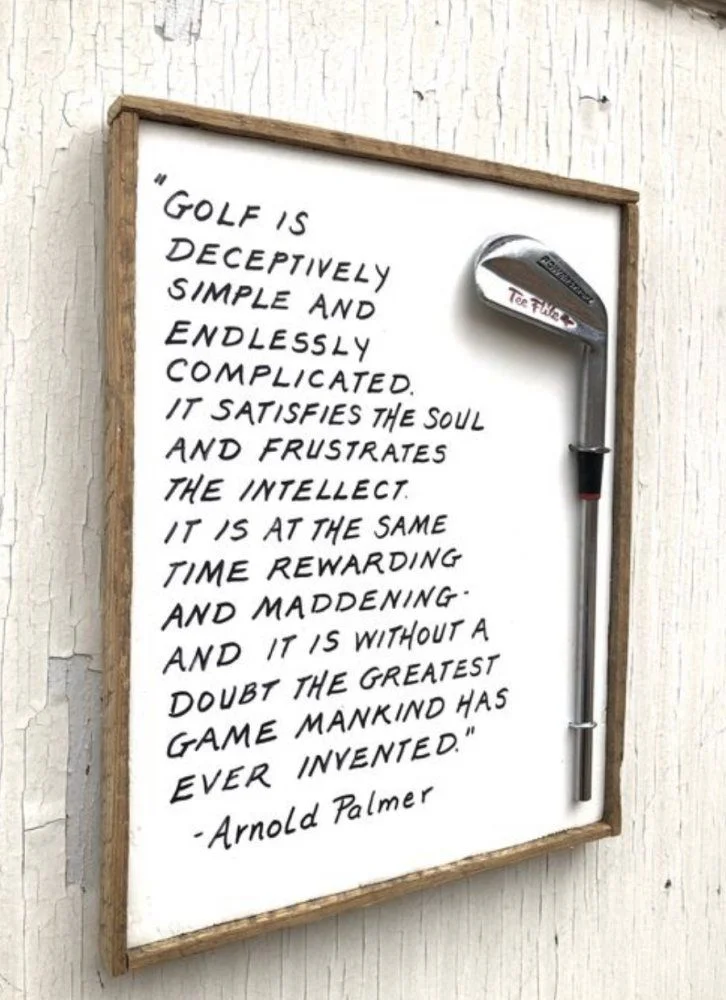 "GOLF IS
DECEPTIVELY
SIMPLE AND
ENDLESSLY
COMPLICATED.
IT SATISFIES THE SOUL
AND FRUSTRATES
THE INTELLECT.
IT IS AT THE SAME
TIME REWARDING
AND MADDENING-
AND IT IS WITHOUT A
DOUBT THE GREATEST
GAME MANKIND HAS
EVER INVENTED."
-Arnold Palmer
Tee Flite